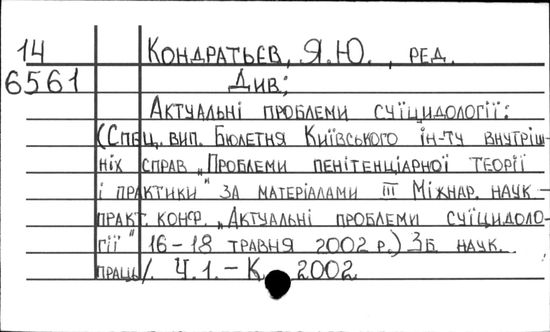 14 Кондратьєв, Я.Ю., ред.
6561 Див:
Актуальні проблеми суїцидології:
(Спец. вип. Бюлетня Київського ін-ту внутріш-
ніх справ „Проблеми пенітенціарної теорії
і практики" за матеріалами III Міжнар. наук-
практ. конф. „Актуальні проблеми суїцидоло-
гії" 16-18 травня 2002 р.) Зб. наук.
праць/. Ч.1.-К. 2002